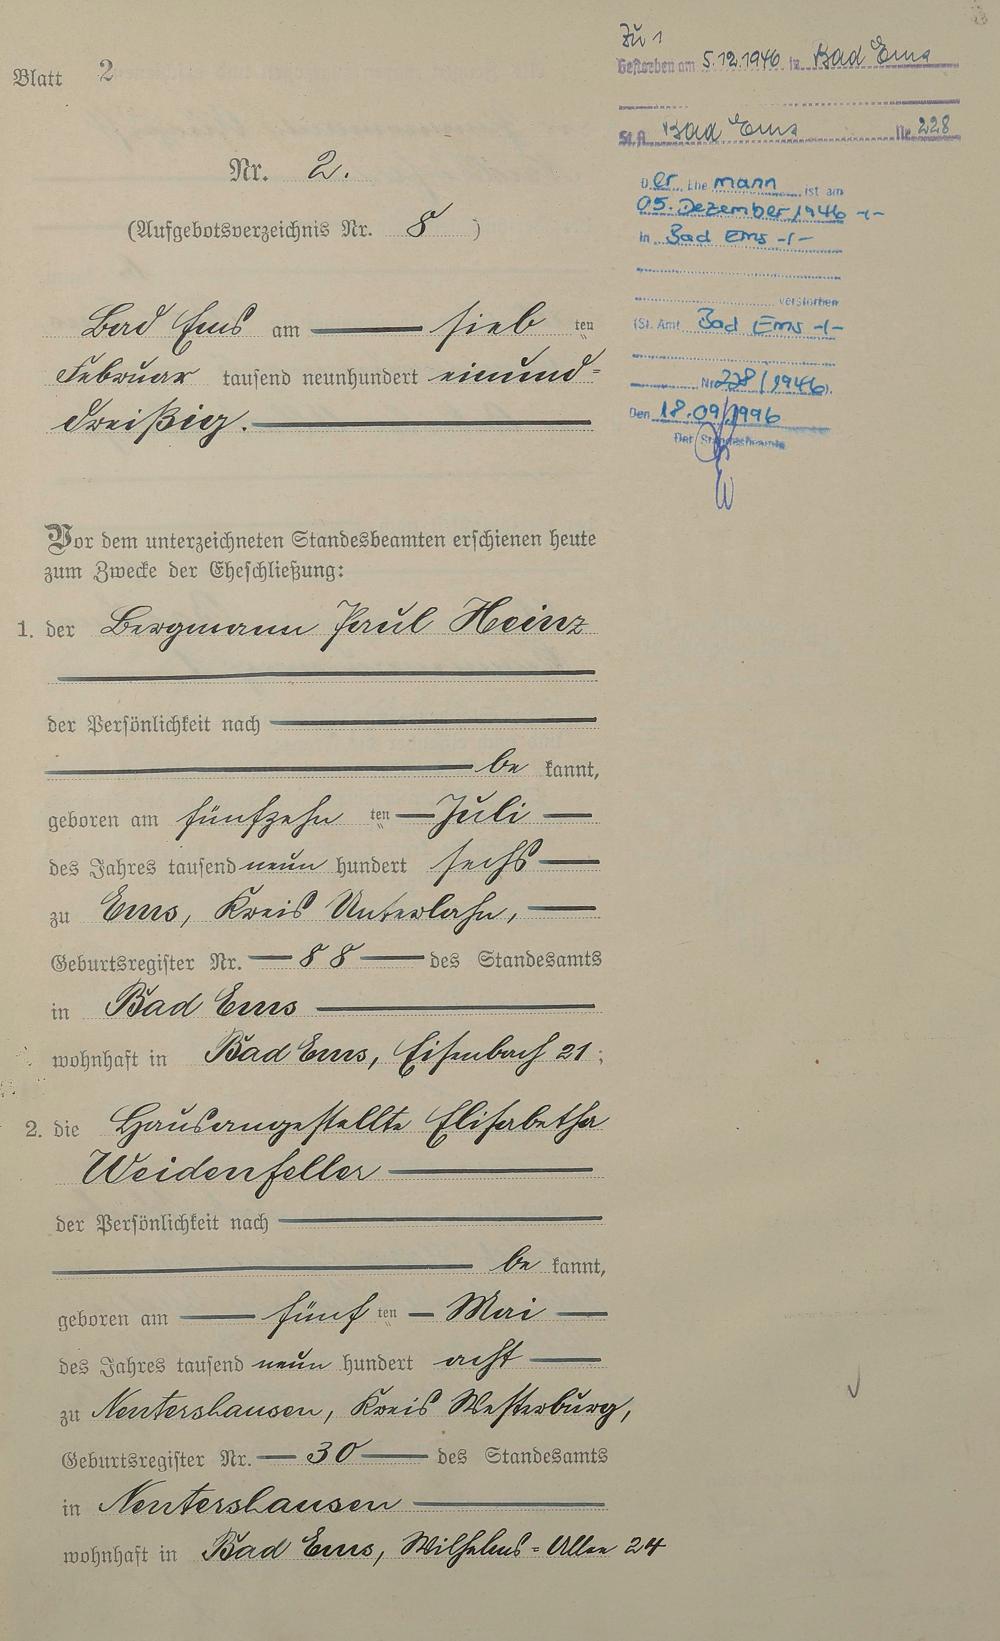 Blatt 2
Nr. 2.
(Aufgebotsverzeichnis Nr. 8)
Bad Ems am sieb ten
Februar tausend neunhundert einund-
dreißig.
Vor dem unterzeichneten Standesbeamten erschienen heute
zum Zwecke der Eheschließung:
1. der Bergmann Paul Heinz
der Persönlichkeit nach
be kannt,
geboren am fünfzehn ten Juli
des Jahres tausend neun hundert sechs
zu Ems, Kreis Unterlahn,
Geburtsregister Nr. 88 des Standesamts
in Bad Ems
wohnhaft in Bad Ems, Eisenbach 21;
2. die Hausangestellte Elisabetha
Weidenfeller
der Persönlichkeit nach
be kannt,
geboren am fünf ten Mai
des Jahres tausend neun hundert acht
zu Nentershausen, Kreis Westerburg,
Geburtsregister Nr. 30 des Standesamts
in Nentershausen
wohnhaft in Bad Ems, Wilhelms-Allee 24
Zu 1
Gestorben am 5.12.1946 in Bad Ems
St.A. Bad Ems Nr. 228
Der Ehemann ist am
05. Dezember 1946 -/-
in Bad Ems -/-
verstorben
(St. Amt Bad Ems -/-
Nr 228/1946).
Den 18.09.1996
Der Standesbeamte